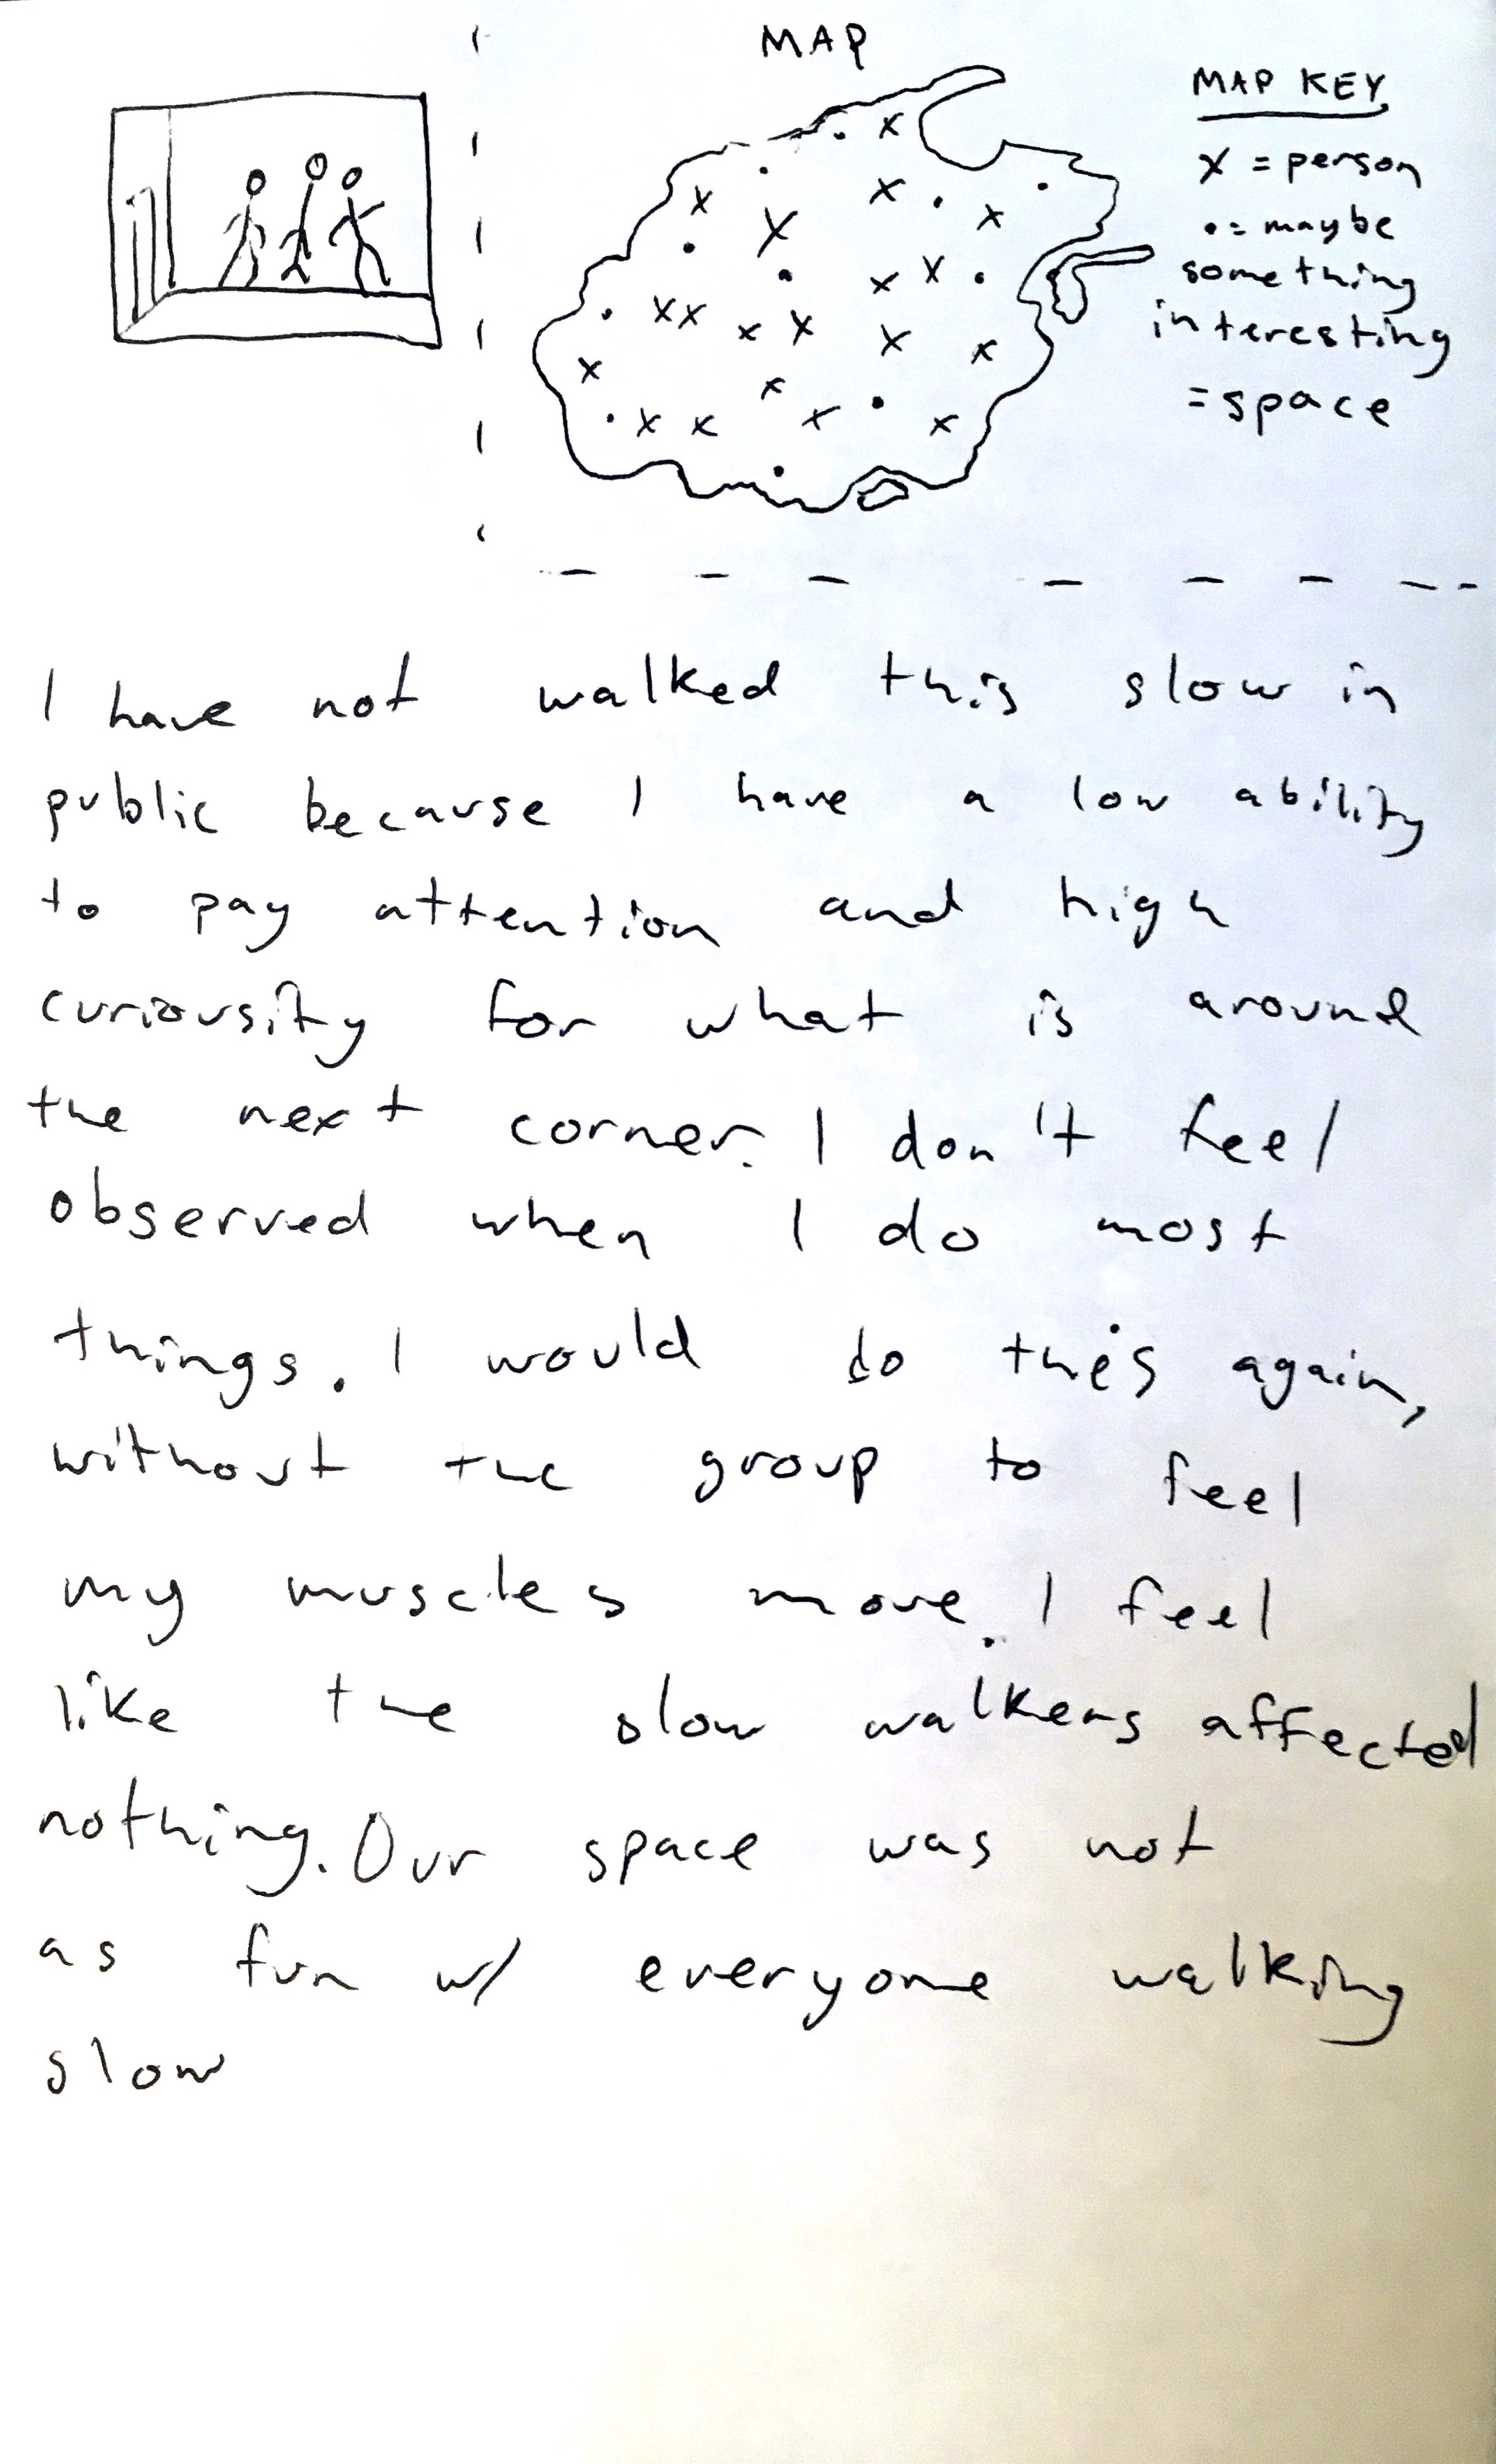 MAP
MAP KEY
x = person
• = maybe
something
interesting
= space
I have not walked this slow in
public because I have a low ability
to pay attention and high
curiousity for what is around
the next corner. I don't feel
observed when I do most
things. I would do this again,
without the group to feel
my muscles move. I feel
like the slow walkers affected
nothing. Our space was not
as fun w/ everyone walking
slow